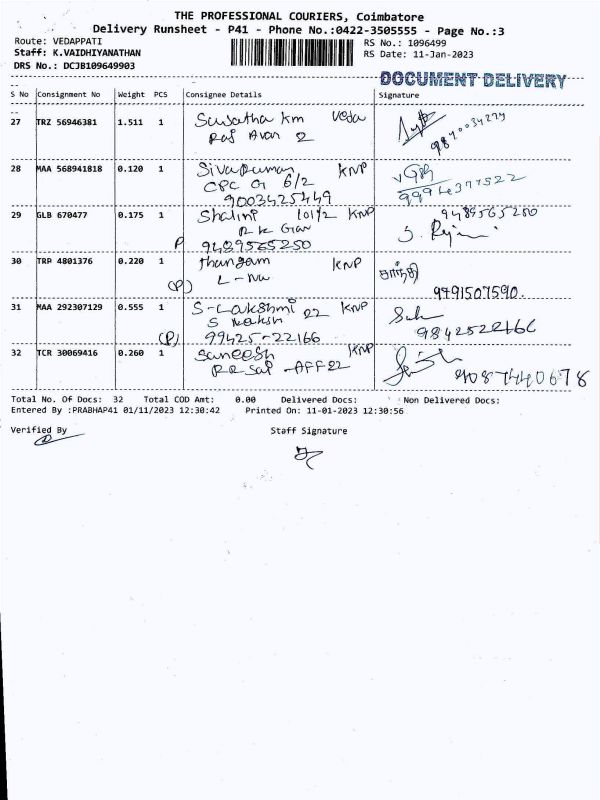 THE PROFESSIONAL COURIERS, Coimbatore
Delivery Runsheet - P41 - Phone No.:0422-3505555 - Page No.:3
Route: VEDAPPATI RS No.: 1096499
Staff: K.VAIDHIYANATHAN RS Date: 11-Jan-2023
DRS No.: DCJB109649903
DOCUMENT DELIVERY
S No Consignment No Weight PCS Consignee Details Signature
27 TRZ 56946381 1.511 1 Suvatha Km Veda
2
28 MAA 568941818 0.120 1 Sivakumar KNP
CPC 6/2
9003425449
29 GLB 670477 0.175 1 Shalini 101/2 KNP 9489565250
R K S. Reji
P 9489565250
30 TRP 4801376 0.220 1 Thangam KNP சாந்தி
(P) L - Nu 9791507590.
31 MAA 292307129 0.555 1 S-Lakshmi 22 KNP
(P) 99425-22166 9842522166
32 TCR 30069416 0.260 1 Saneesh KNP
4087440678
Total No. Of Docs: 32 Total COD Amt: 0.00 Delivered Docs: Non Delivered Docs:
Entered By :PRABHAP41 01/11/2023 12:30:42 Printed On: 11-01-2023 12:30:56
Verified By Staff Signature